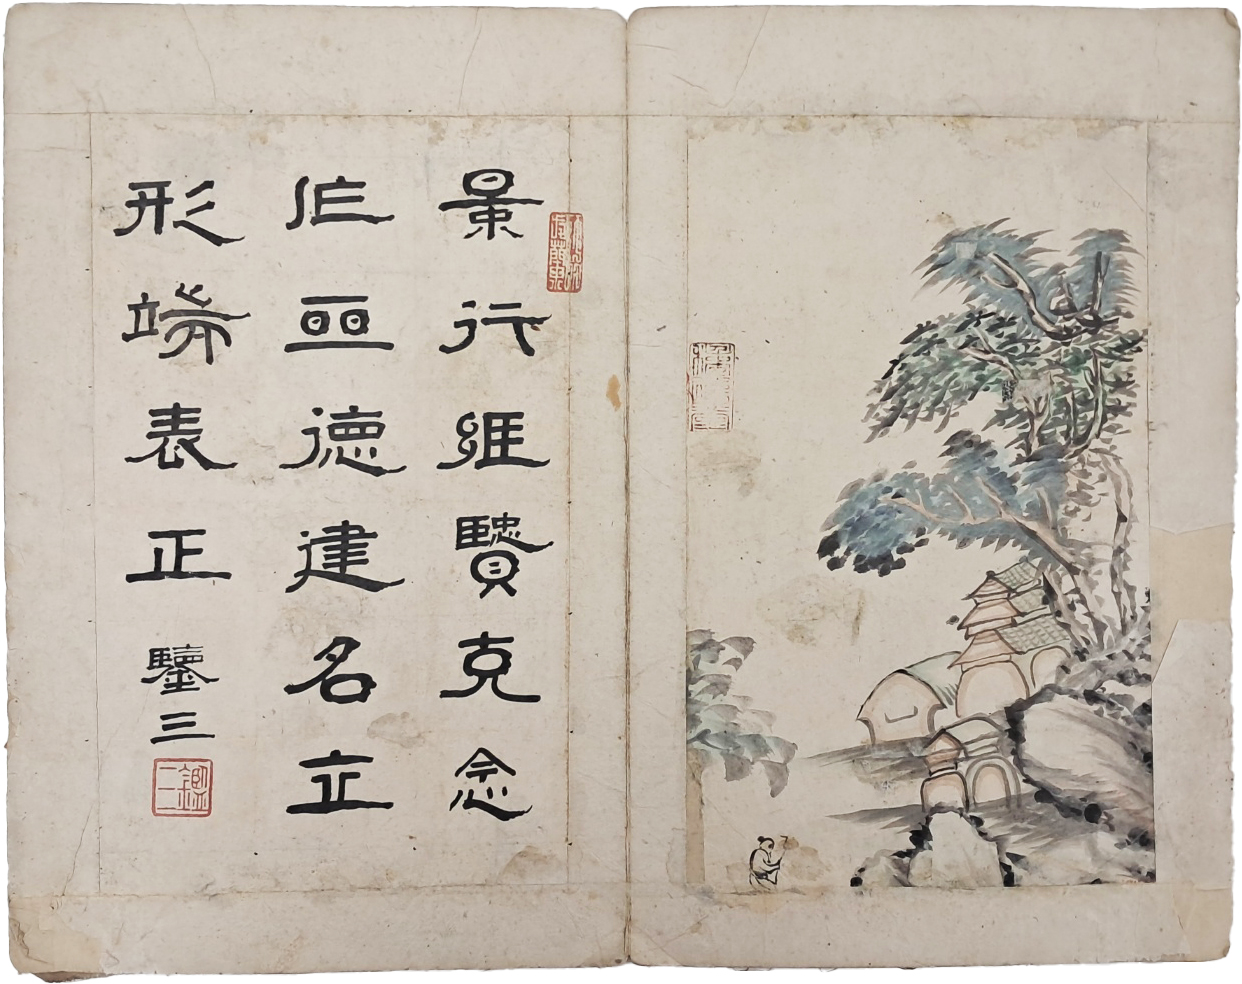 景行維賢克念
作聖德建名立
形端表正
鑒三
鑑三